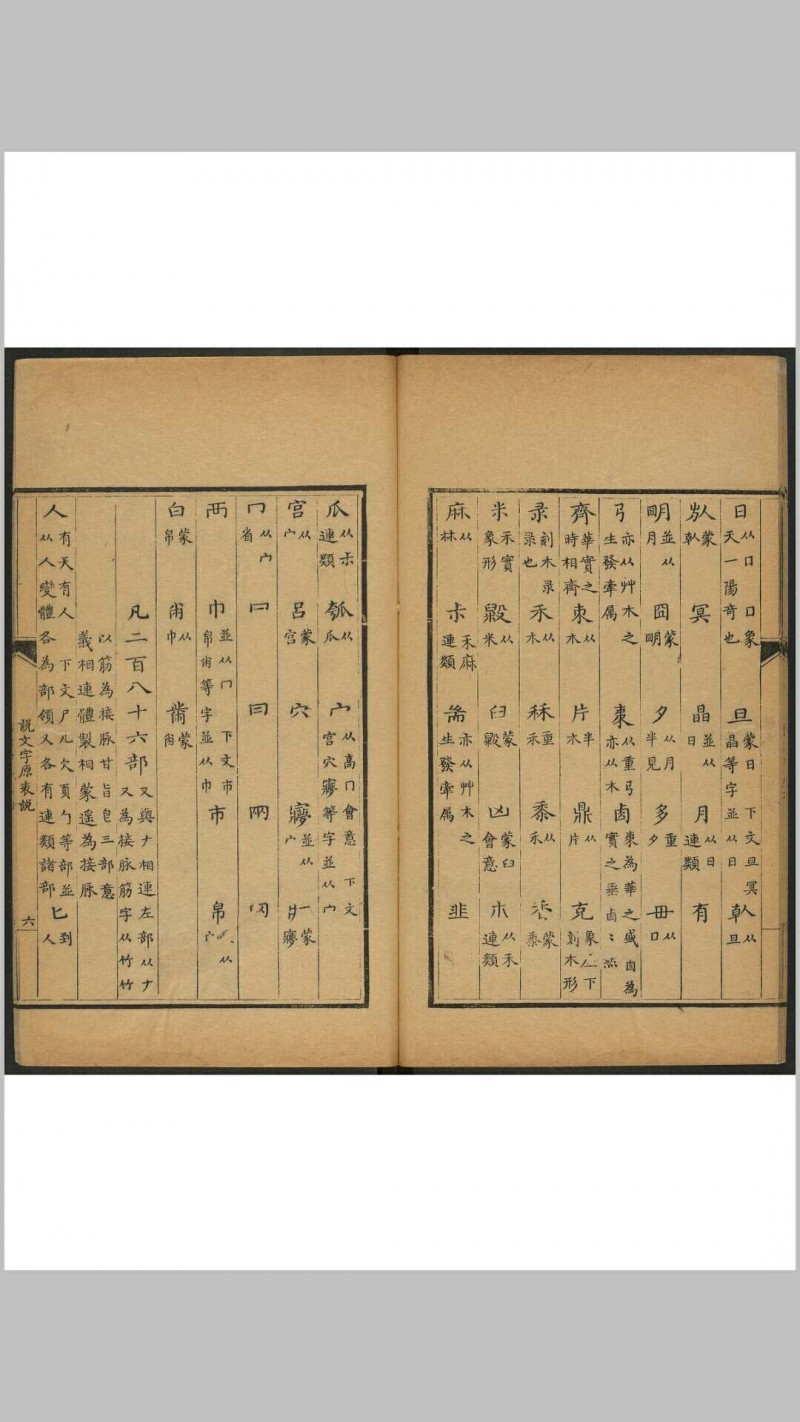 日 从口 口象天一陽奇也 旦 蒙日 下文旦冥晶等字並从日 倝 从旦
㫃 蒙倝 冥 晶 並从日 月 从日連類 有
朙 並从月 囧 蒙朙 夕 从月半見 多 重夕 毌 从口
𢎘 亦从艸木之生發牽属 㯥 从重𢎘亦从木 𠧪 㯥為華之盛𠧪為實之垂𠧪𠧪然
齊 華實之時相齊 朿 从木 片 半木 鼎 从片 克 象 下刻木形
彔 刻木彔彔也 禾 从木 秝 重禾 黍 从禾 香 蒙黍
米 禾實象形 毇 从米 臼 蒙毇 凶 蒙臼會意 朩 从禾連類
麻 从林 尗 禾麻連類 耑 亦从艸木之生發牽属 韭
瓜 从尗連類 瓠 从瓜 宀 从高冂會意 下文宮穴㝱等字並从宀
宮 从宀 呂 蒙宮 穴 㝱 並从宀 疒 蒙㝱
冖 从宀省 冃 㒳 网
襾 巾 並从冂 下文市帛㡀等字並从巾 市 帛 从
白 蒙帛 㡀 从巾 黹 蒙㡀
凡二百八十六部 又與𠂇相連左部从𠂇又為接脉筋字从竹竹
以筋為接脉甘旨皀三部意義相連體製相蒙遥為接脉
人 有天有人 下文尸儿欠頁勹等部並从人變體各為部領又各有連類諸部 匕 到人
説文字原表説
六